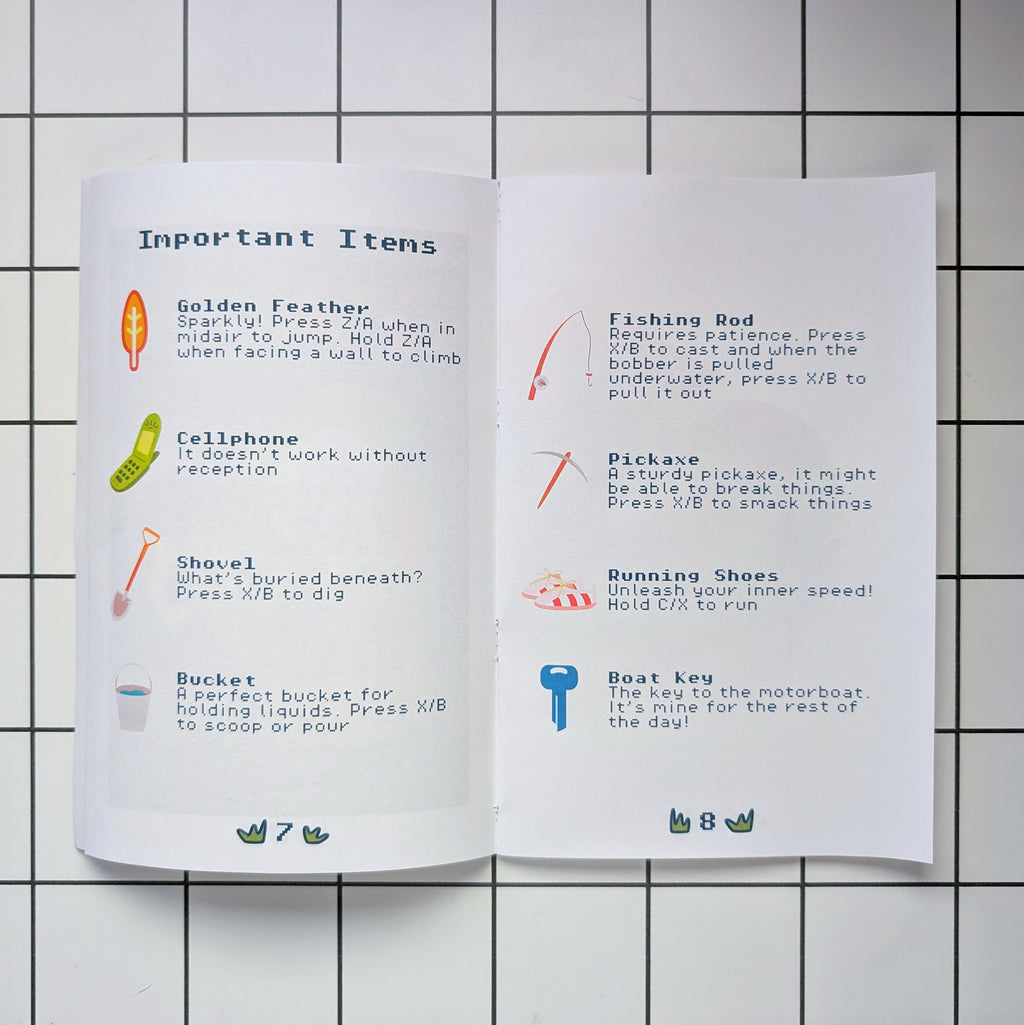 Important Items
Golden Feather
Sparkly! Press Z/A when in
midair to jump. Hold Z/A
when facing a wall to climb
Cellphone
It doesn't work without
reception
Shovel
What's buried beneath?
Press X/B to dig
Bucket
A perfect bucket for
holding liquids. Press X/B
to scoop or pour
7
Fishing Rod
Requires patience. Press
X/B to cast and when the
bobber is pulled
underwater, press X/B to
pull it out
Pickaxe
A sturdy pickaxe, it might
be able to break things.
Press X/B to smack things
Running Shoes
Unleash your inner speed!
Hold C/X to run
Boat Key
The key to the motorboat.
It's mine for the rest of
the day!
8